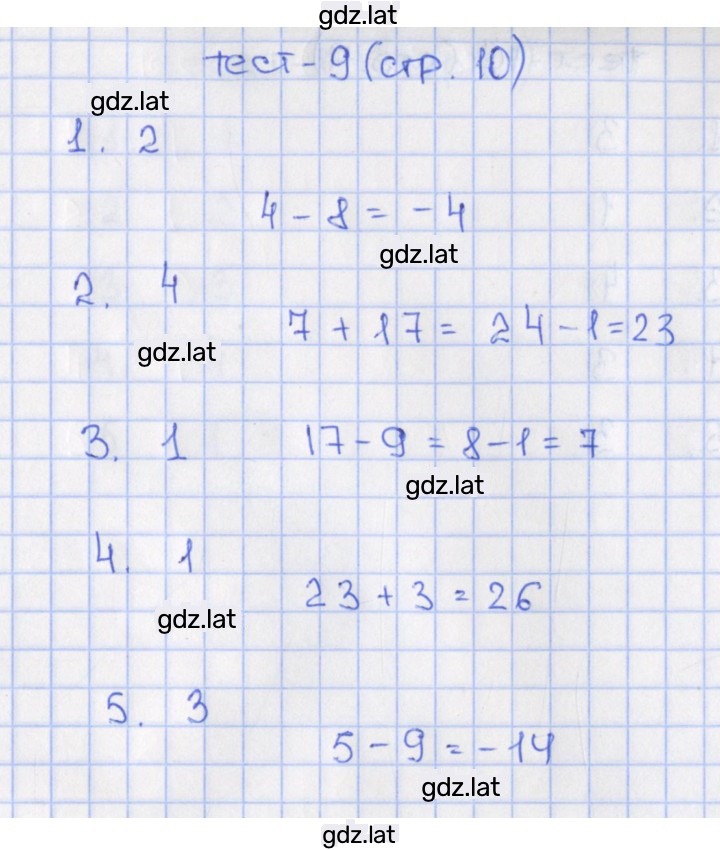 gdz.lat
тест-9 (стр. 10)
gdz.lat
1. 2
4 - 8 = -4
gdz.lat
2. 4
7 + 17 = 24 - 1 = 23
gdz.lat
3. 1 17 - 9 = 8 - 1 = 7
gdz.lat
4. 1
23 + 3 = 26
gdz.lat
5. 3
5 - 9 = -14
gdz.lat
gdz.lat